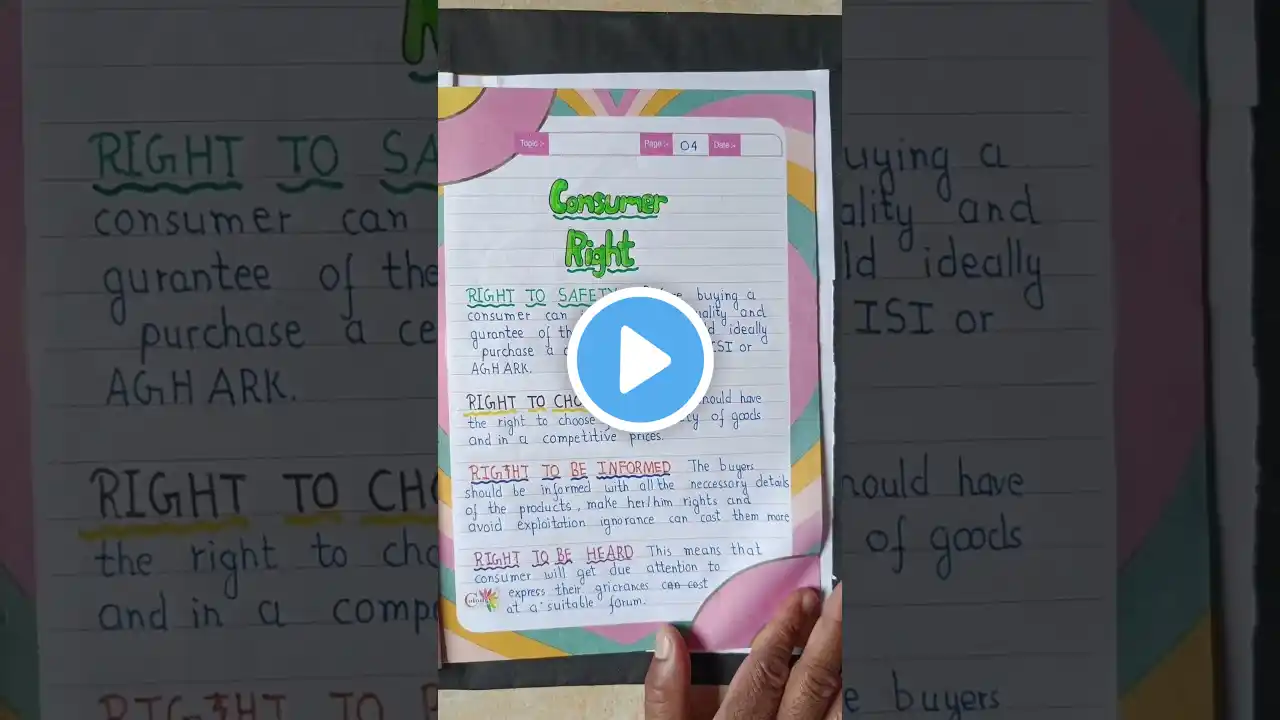 Topic :- Page :- 04 Date :-
Consumer
Right
RIGHT TO SAFETY buying a
consumer can and
gurantee of the ideally
purchase a ISI or
AGHARK.
RIGHT TO should have
the right to choose of goods
and in a competitive prices.
RIGHT TO BE INFORMED The buyers
should be informed with all the neccessory details
of the products, make her/him rights and
avoid exploitation ignorance can cast them more
RIGHT TO BE HEARD This means that
consumer will get due attention to
express their gricrances can cost
at a suitable forum.